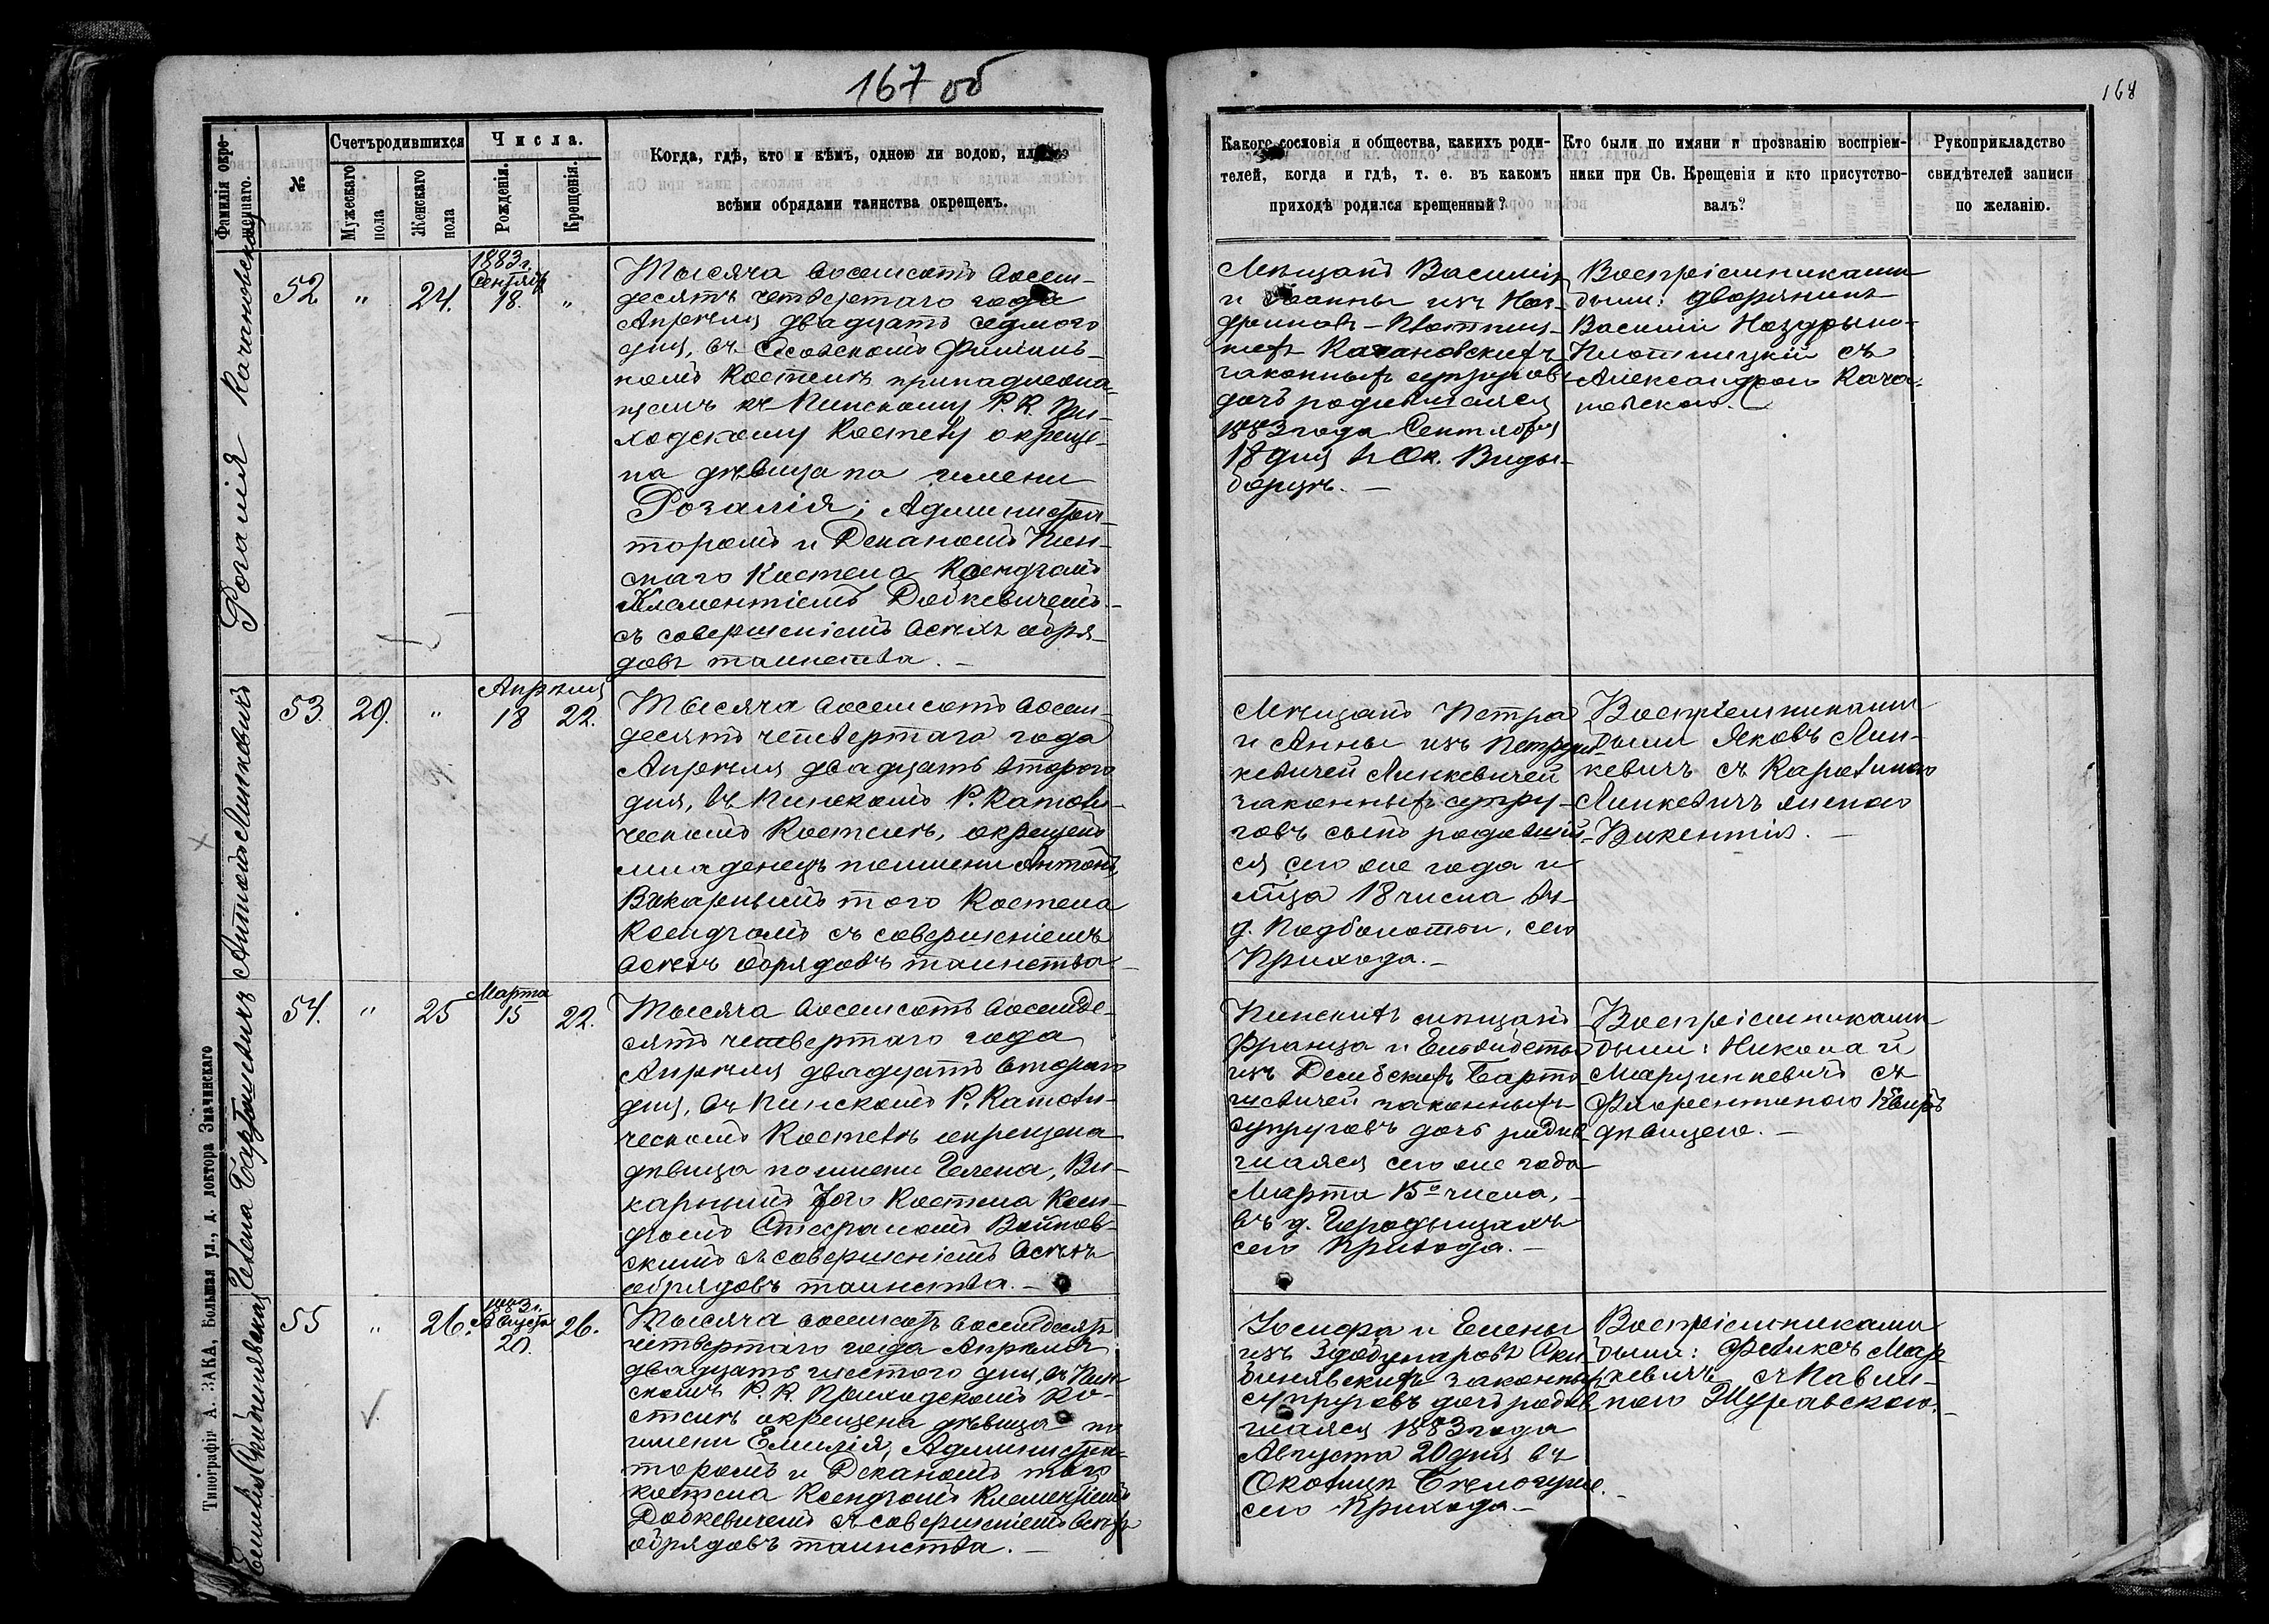 167 об
168
Фамилія окре-
щеннаго.
№
Счетъ родившихся
Мужескаго
пола
Женскаго
пола
Числа.
Рожденія.
Крещенія.
Когда, гдѣ, кто и кѣмъ, одною ли водою, или со
всѣми обрядами таинства окрещенъ.
Какого сословія и общества, какихъ роди-
телей, когда и гдѣ, т. е. въ какомъ
приходѣ родился крещенный?
Кто были по имяни и прозванію воспріем-
ники при Св. Крещеніи и кто присутство-
валъ?
Рукоприкладство
свидѣтелей записи
по желанію.
Розалія Качановская
52
"
24.
1883 г.
Сентября
18.
"
Тысяча восемьсотъ восем-
десятъ четвертаго года
Апрѣля двадцать седмого
дня, въ филіаль-
номъ Костелѣ принадлежа-
щемъ къ Пинскому Р. К. При-
ходскому Костелу окреще-
на дѣвица по имени
Розалія; Администра-
торомъ и Деканомъ Пин-
скаго Костела Ксендзомъ
Клементіемъ Додкевичемъ
съ совершеніемъ всѣхъ обря-
довъ таинства. –
Мѣщанъ Василія
и Іоанны изъ Ноз-
дриновъ-Плотниц-
кихъ Качановскихъ
законныхъ супруговъ
дочь родившаяся
1883 года Сентября
18 дня въ Ок. Виды-
борцѣ. –
Воспріемниками
были: дворянинъ
Василій Ноздрыно-
Плотницкій съ
Александрою Кача-
новскою.
Антонъ Линкевичъ
53.
29.
"
Апрѣля
18
22.
Тысяча восемьсотъ восем-
десятъ четвертаго года
Апрѣля двадцать второго
дня, въ Пинскомъ Р. Католи-
ческомъ Костелѣ, окрещенъ
младенецъ по имени Антонъ
Викарнымъ того Костела
Ксендзомъ съ совершеніемъ
всѣхъ обрядовъ таинства. –
Мѣщанъ Петра
и Анны изъ
кевичей Линкевичей
законныхъ супру-
говъ сынъ родивший-
ся сего же года и
мѣца 18 числа въ
д. Подболотьи, сего
Прихода. –
Воспріемниками
были Яковъ Лин-
кевичъ съ Каролиною
Линкевичъ женою
Викентія. –
Гелена Бартошевичъ
54.
"
25
Марта
15
22.
Тысяча восемьсотъ восемде-
сятъ четвертаго года
Апрѣля двадцать второго
дня, въ Пинскомъ Р. Католи-
ческомъ Костелѣ окрещена
дѣвица по имени Гелена, Ви-
карнымъ того Костела Ксен-
дзомъ Стефаномъ Войнов-
скимъ съ совершеніемъ всѣхъ
обрядовъ таинства. –
Пинскихъ мѣщанъ
Франца и Елизаветы
изъ Барто-
шевичей законныхъ
супруговъ дочь родив-
шаяся сего же года
Марта 15º числа,
въ д. Городыщахъ
сего Прихода. –
Воспріемниками
были: Николай
Марцинкевичъ съ
Флорентиною
дѣвицею. –
Емилія
55
"
26.
1883 г.
Августа
20.
26.
Тысяча восемьсотъ восемдесятъ
четвертаго года Апрѣля
двадцать шестого дня, въ Пин-
скомъ Р. К. Приходскомъ Ко-
стелѣ окрещена дѣвица по
имени Емилія, Администра-
торомъ и Деканомъ того
костела Ксендзомъ Клементіемъ
Додкевичемъ съ совершеніемъ всѣхъ
обрядовъ таинства. –
Іосифа и Елены
изъ
законныхъ
супруговъ дочь родив-
шаяся 1883 года
Августа 20 дня въ
Околицѣ
сего Прихода –
Воспріемниками
были: Феликсъ Мар-
кевичъ съ Павли-
ною Журавскою. –
Типографія А. ЗАКА, Большая ул., д. доктора Значинскаго